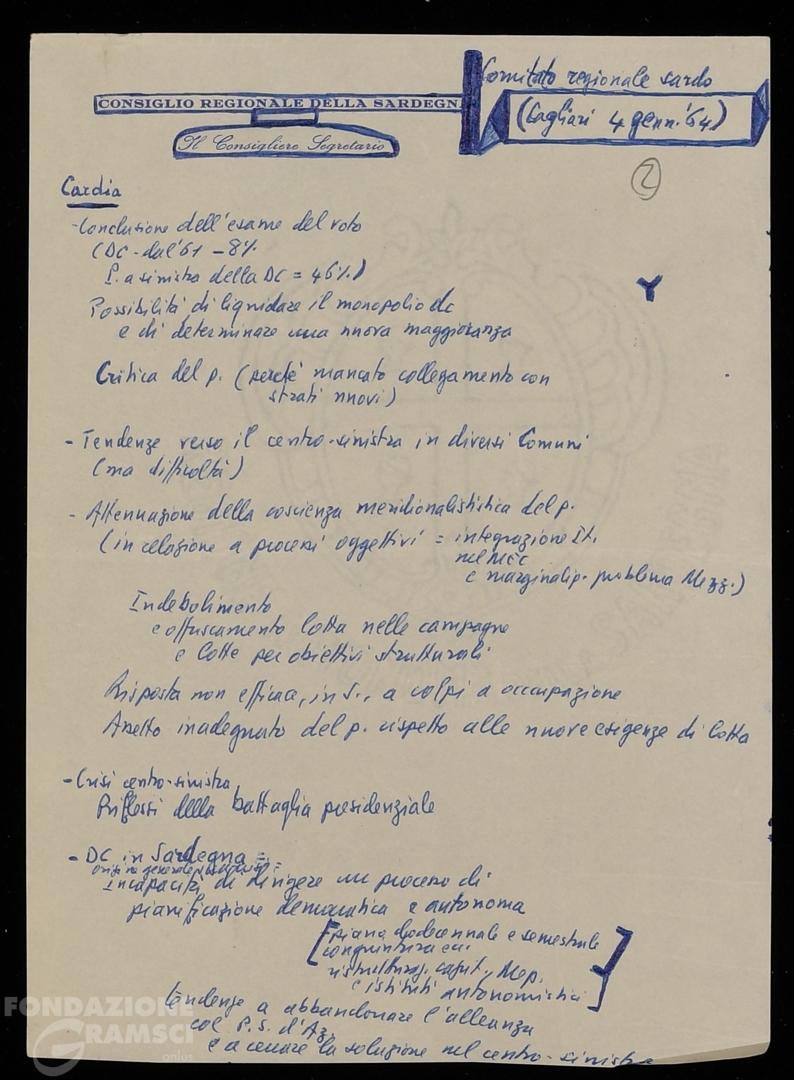 Comitato regionale sardo
CONSIGLIO REGIONALE DELLA SARDEGNA
(Cagliari 4 genn. '64)
Il Consigliere Segretario
2
Cardia
- Conclusione dell'esame del voto
(DC - dal '61 - 8%
P. a sinistra della DC = 46%)
Possibilità di liquidare il monopolio dc
e di determinare una nuova maggioranza
Critica del p. (perché mancato collegamento con
strati nuovi)
- Tendenze verso il centro-sinistra in diversi Comuni
(ma difficoltà)
- Attenuazione della coscienza meridionalististica del p.
(in relazione a processi oggettivi = integrazione It.
nel MEC
e marginalip. problema Mezz.)
Indebolimento
e offuscamento lotta nelle campagne
e lotte per obiettivi strutturali
Risposta non efficace, in S., a colpi a occupazione
Assetto inadeguato del p. rispetto alle nuove esigenze di lotta
- Crisi centro-sinistra
Riflessi della battaglia presidenziale
- DC in Sardegna =
Incapacità di dirigere un processo di
pianificazione democratica e autonoma
[piano dodecennale e semestrale
congiuntura ecc.
ristrutturaz. capit., Mep.
e istituti autonomistici]
tendenze a abbandonare l'alleanza
col P.S. d'Az.
e a cercare la soluzione nel centro-sinistra
FONDAZIONE
GRAMSCI
onlus